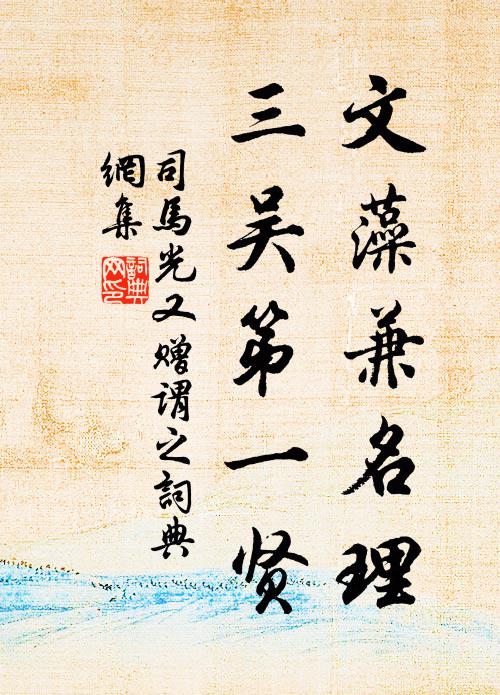 文藻兼名理
三吴第一贤
司馬光又赠谓之詞典
網集
詞典
网印